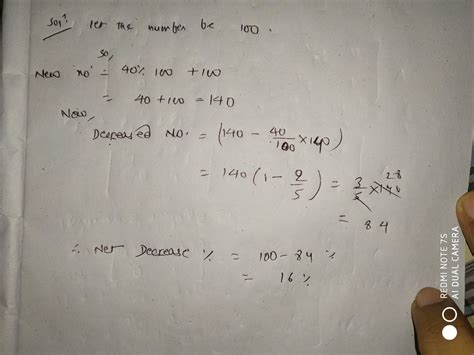 Sol? let the number be 100.
So,
New no = 40% 100 + 100
= 40 + 100 = 140
Now,
Decreased No. = (140 - 40/100 × 140)
= 140 (1 - 2/5) = 3/5 × 140 28
= 84
∴ Net Decrease % = 100 - 84 %
= 16 %
REDMI NOTE 7S
AI DUAL CAMERA